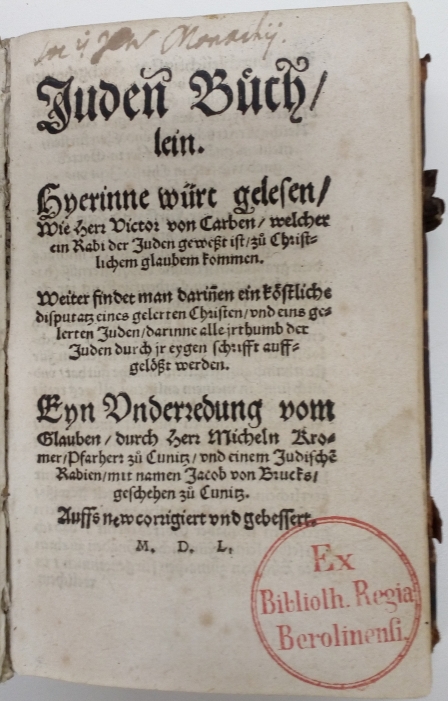 Juden̄ Bůch/
lein.
Hyerinne würt gelesen/
Wie Herr Victor von Carben/ welcher
ein Rabi der Juden geweßt ist/zů Christ-
lichem glaubem kommen.
Weiter findet man dariñen ein köstliche
disputatz eines gelerten Christen/vnd eins ge-
lerten Juden/darinne alle jrthumb der
Juden durch jr eygen schrifft auff-
gelößt werden.
Eyn Vnderredung vom
Glauben/ durch Herr Micheln Kro-
mer/Pfarherr zů Cunitz/ vnd einem Judischē
Rabien/mit namen Jacob von Brucks/
geschehen zů Cunitz.
Auffs new corrigiert vnd gebessert.
M. D. L.
Ex
Biblioth. Regia
Berolinensi.